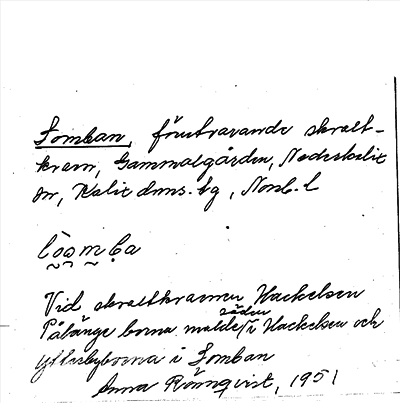 Lomban, förutvarande skvalt-
kvarn, Gammalgården, Nederkalix
sn, Kalix dmns. bg, Norrb. l
lòo̰m̰ba
Vid skvaltkvarnen Hackelsen
säden
Pålänge borna malde / i Hackelsen och
Ytterbyborna i Lomban
Anna Rönnqvist, 1951